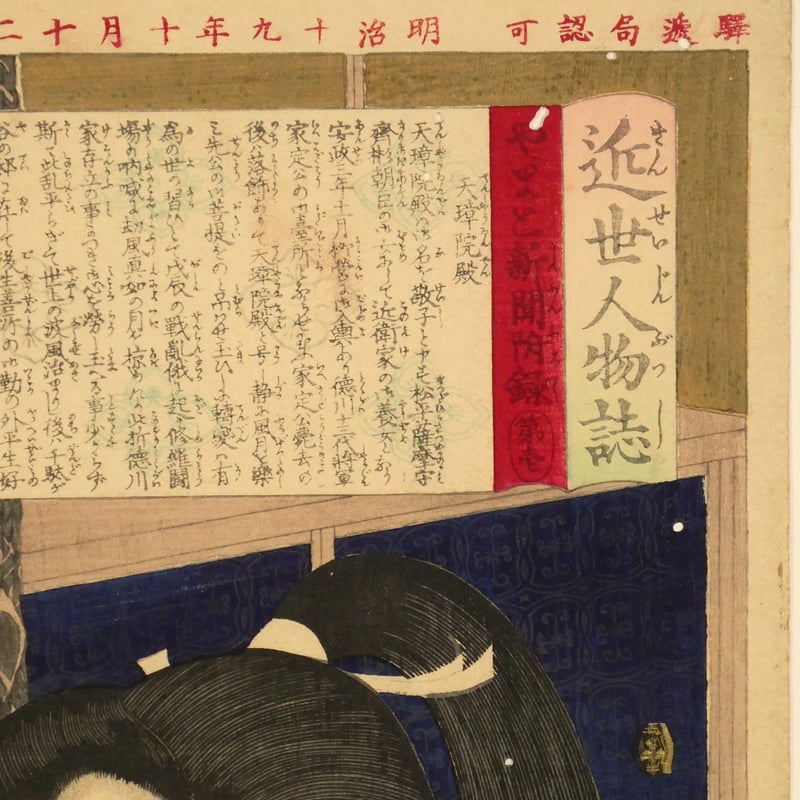 驛遞局認可　明治十九年十月十二
近世人物誌
きんせいじんぶつし
やまと新聞附録
第壱
天璋院殿
天璋院殿の御名を敬子と申す松平薩摩守
齊彬朝臣の御女にして近衛家の御養女となり
安政三年十一月柳營に御入輿あり徳川十三代將軍
家定公の御臺所とならせ家定公薨去の
後は落飾ありて天璋院殿と号し静に風月を樂
み先公の御菩提をのみ吊はせ玉ひしが轉変は有
為の世の習ひとて戊辰の戰亂俄に起り修羅鬪
場の吶喊は劫風真如の月を掠めたり此折徳川
家存立の事につき御心を勞し玉へる事少なからず
斯て此乱平らぎて世上の波風治まりし後ハ千駄が
谷の邸に在して後生善所の御勤の外平生好